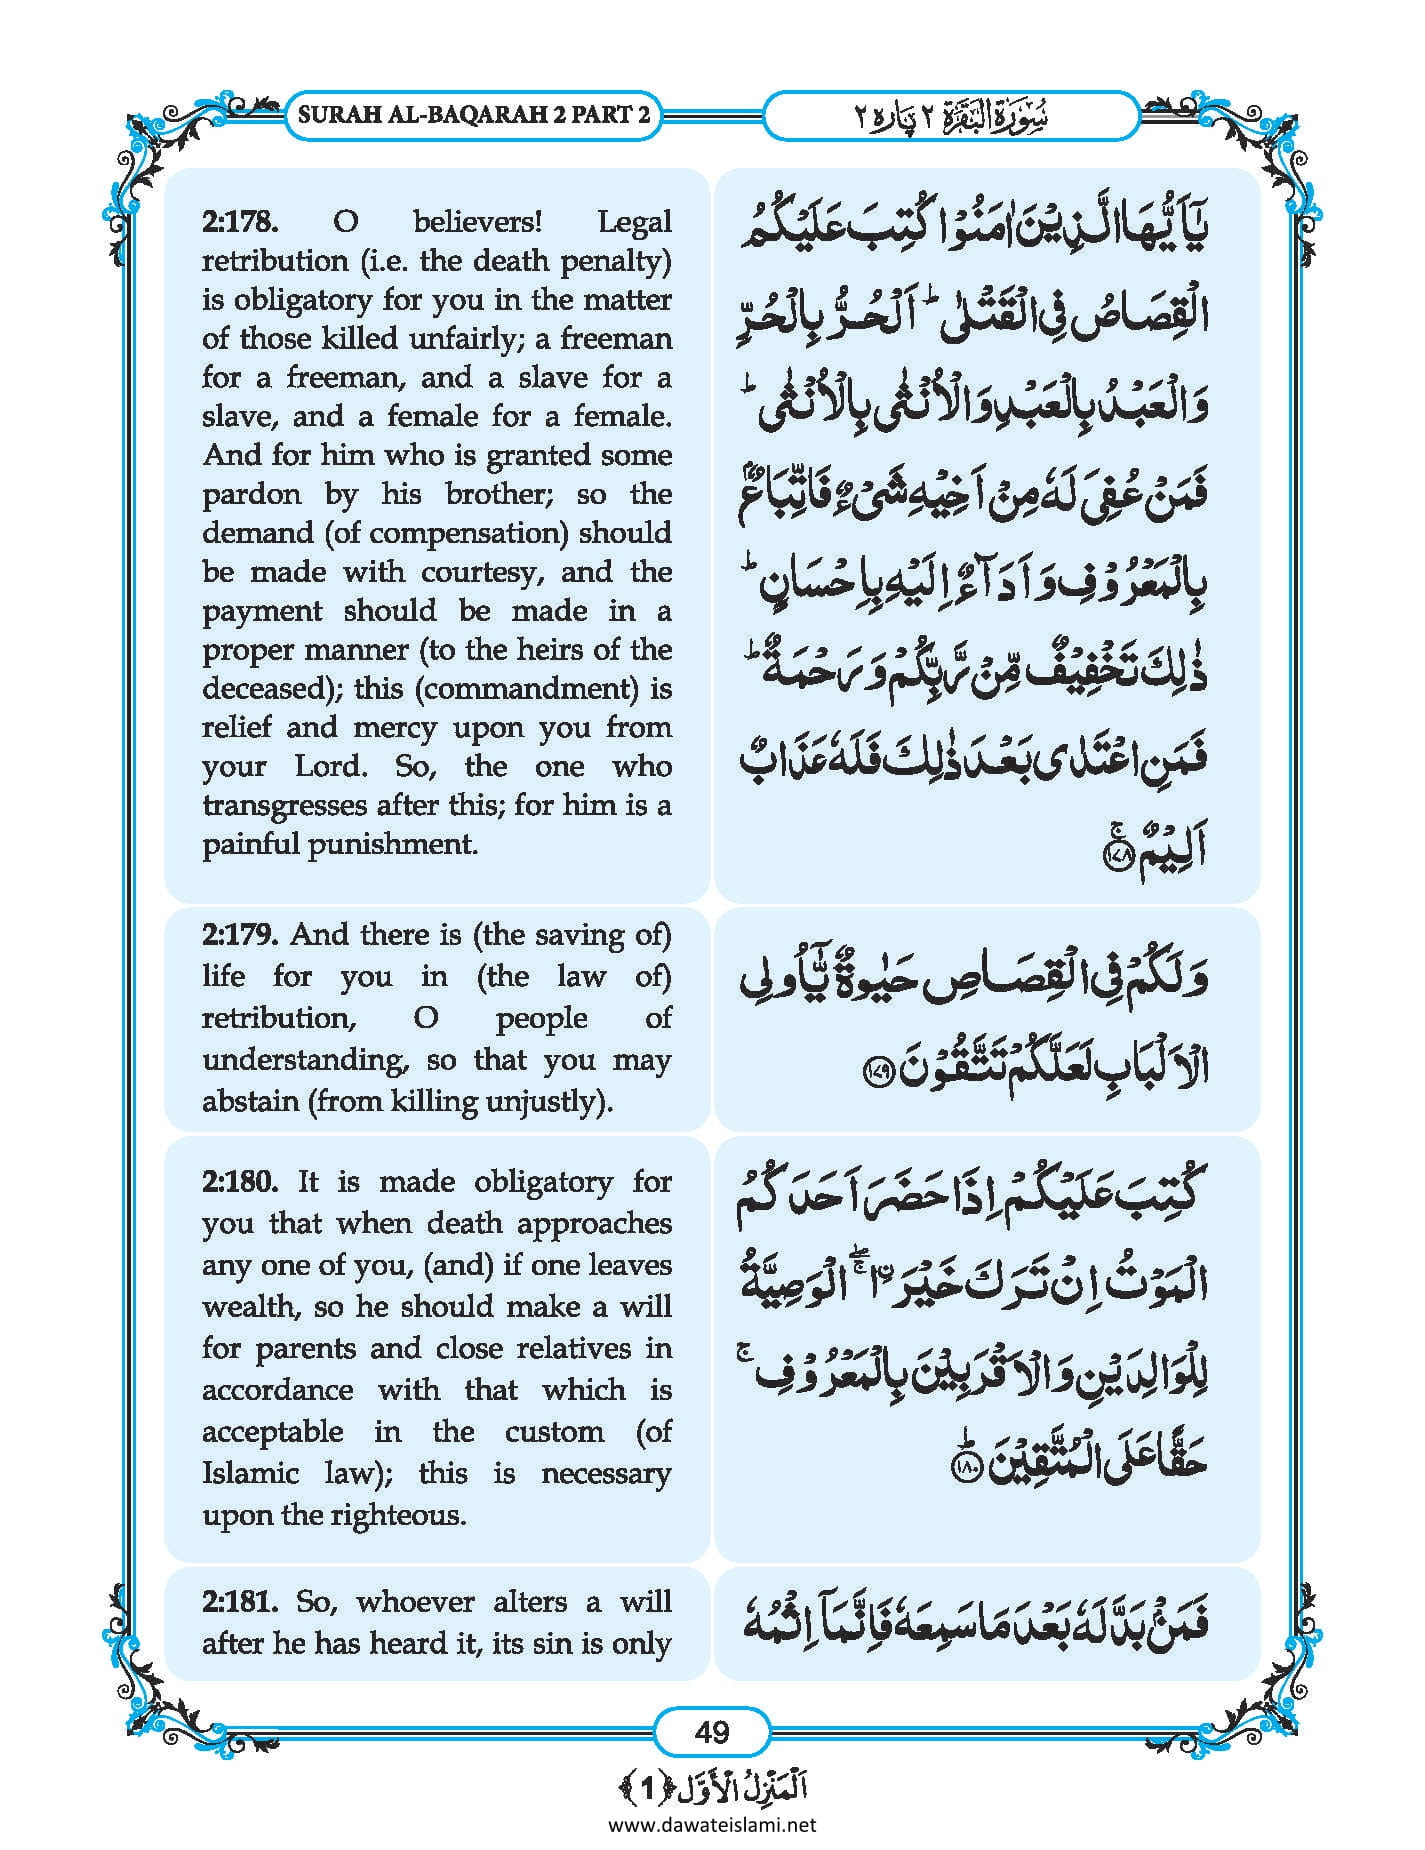 SURAH AL-BAQARAH 2 PART 2
سُوْرَةُ الْبَقَرَة ٢ پَارہ ٢
2:178. O believers! Legal
retribution (i.e. the death penalty)
is obligatory for you in the matter
of those killed unfairly; a freeman
for a freeman, and a slave for a
slave, and a female for a female.
And for him who is granted some
pardon by his brother; so the
demand (of compensation) should
be made with courtesy, and the
payment should be made in a
proper manner (to the heirs of the
deceased); this (commandment) is
relief and mercy upon you from
your Lord. So, the one who
transgresses after this; for him is a
painful punishment.
یٰۤاَیُّهَا الَّذِیْنَ اٰمَنُوْا كُتِبَ عَلَیْكُمُ
الْقِصَاصُ فِی الْقَتْلٰىؕ اَلْحُرُّ بِالْحُرِّ
وَ الْعَبْدُ بِالْعَبْدِ وَ الْاُنْثٰى بِالْاُنْثٰىؕ
فَمَنْ عُفِیَ لَهٗ مِنْ اَخِیْهِ شَیْءٌ فَاتِّبَاعٌۢ
بِالْمَعْرُوْفِ وَ اَدَآءٌ اِلَیْهِ بِاِحْسَانٍؕ
ذٰلِكَ تَخْفِیْفٌ مِّنْ رَّبِّكُمْ وَ رَحْمَةٌؕ
فَمَنِ اعْتَدٰى بَعْدَ ذٰلِكَ فَلَهٗ عَذَابٌ
اَلِیْمٌۚ ﴿۱۷۸﴾
2:179. And there is (the saving of)
life for you in (the law of)
retribution, O people of
understanding, so that you may
abstain (from killing unjustly).
وَ لَكُمْ فِی الْقِصَاصِ حَیٰوةٌ یّٰۤاُولِی
الْاَلْبَابِ لَعَلَّكُمْ تَتَّقُوْنَ ﴿۱۷۹﴾
2:180. It is made obligatory for
you that when death approaches
any one of you, (and) if one leaves
wealth, so he should make a will
for parents and close relatives in
accordance with that which is
acceptable in the custom (of
Islamic law); this is necessary
upon the righteous.
كُتِبَ عَلَیْكُمْ اِذَا حَضَرَ اَحَدَكُمُ
الْمَوْتُ اِنْ تَرَكَ خَیْرَاۚۖ ۨ الْوَصِیَّةُ
لِلْوَالِدَیْنِ وَ الْاَقْرَبِیْنَ بِالْمَعْرُوْفِۚ
حَقًّا عَلَى الْمُتَّقِیْنَؕ ﴿۱۸۰﴾
2:181. So, whoever alters a will
after he has heard it, its sin is only
فَمَنْۢ بَدَّلَهٗ بَعْدَ مَا سَمِعَهٗ فَاِنَّمَاۤ اِثْمُهٗ
49
اَلْمَنْزِلُ الْاَوَّل ﴿1﴾
www.dawateislami.net